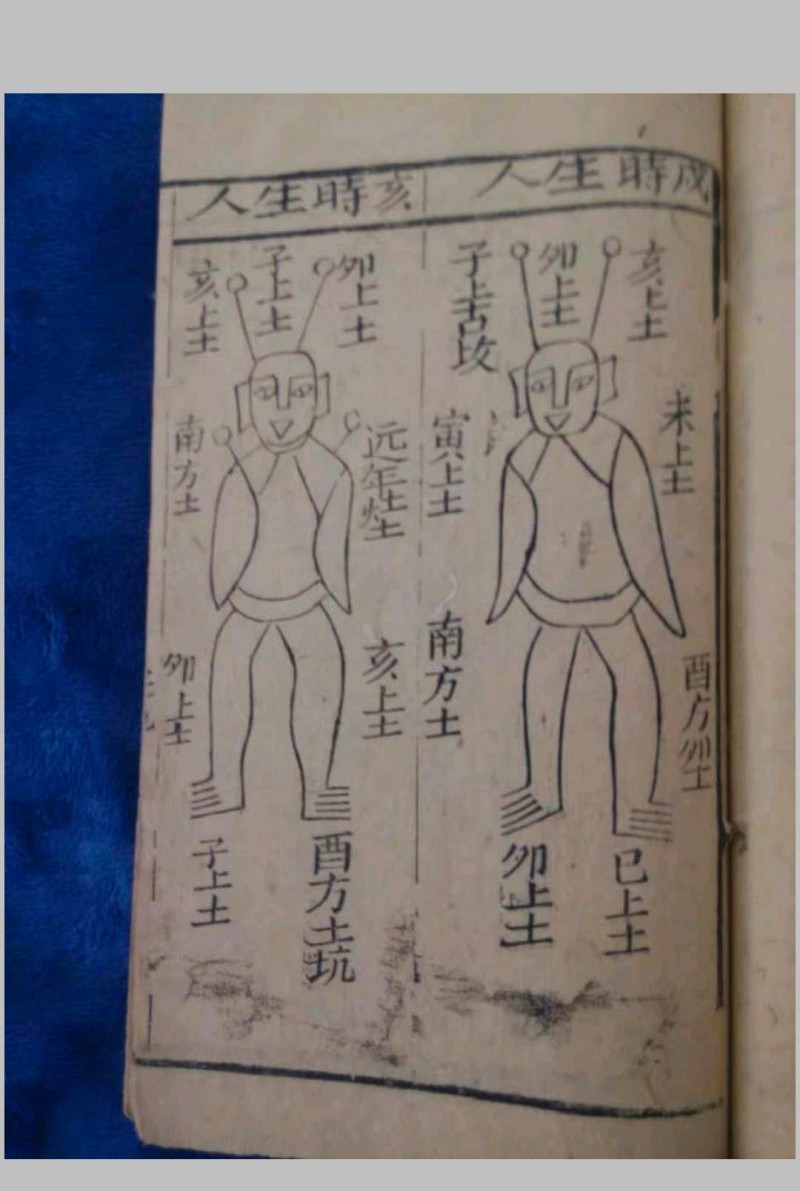 戌時生人
亥上土
卯上土
子上古坟
未上土
寅上土
酉方卯土
南方土
巳上土
卯上土
亥時生人
卯上土
子上土
亥上土
南方土
亥上土
卯上土
酉方土坑
子上土